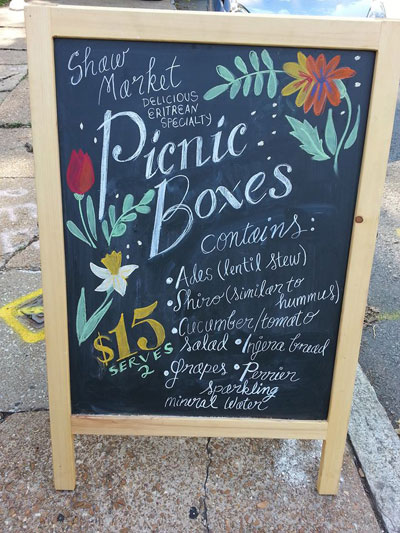 Shaw
Market
DELICIOUS
ERITREAN
SPECIALTY
Picnic
Boxes
contains:
• Ades (lentil stew)
• Shiro (similar to
hummus)
• Cucumber/tomato
salad • Injera bread
• grapes • Perrier
sparkling
mineral water
$15
SERVES
2